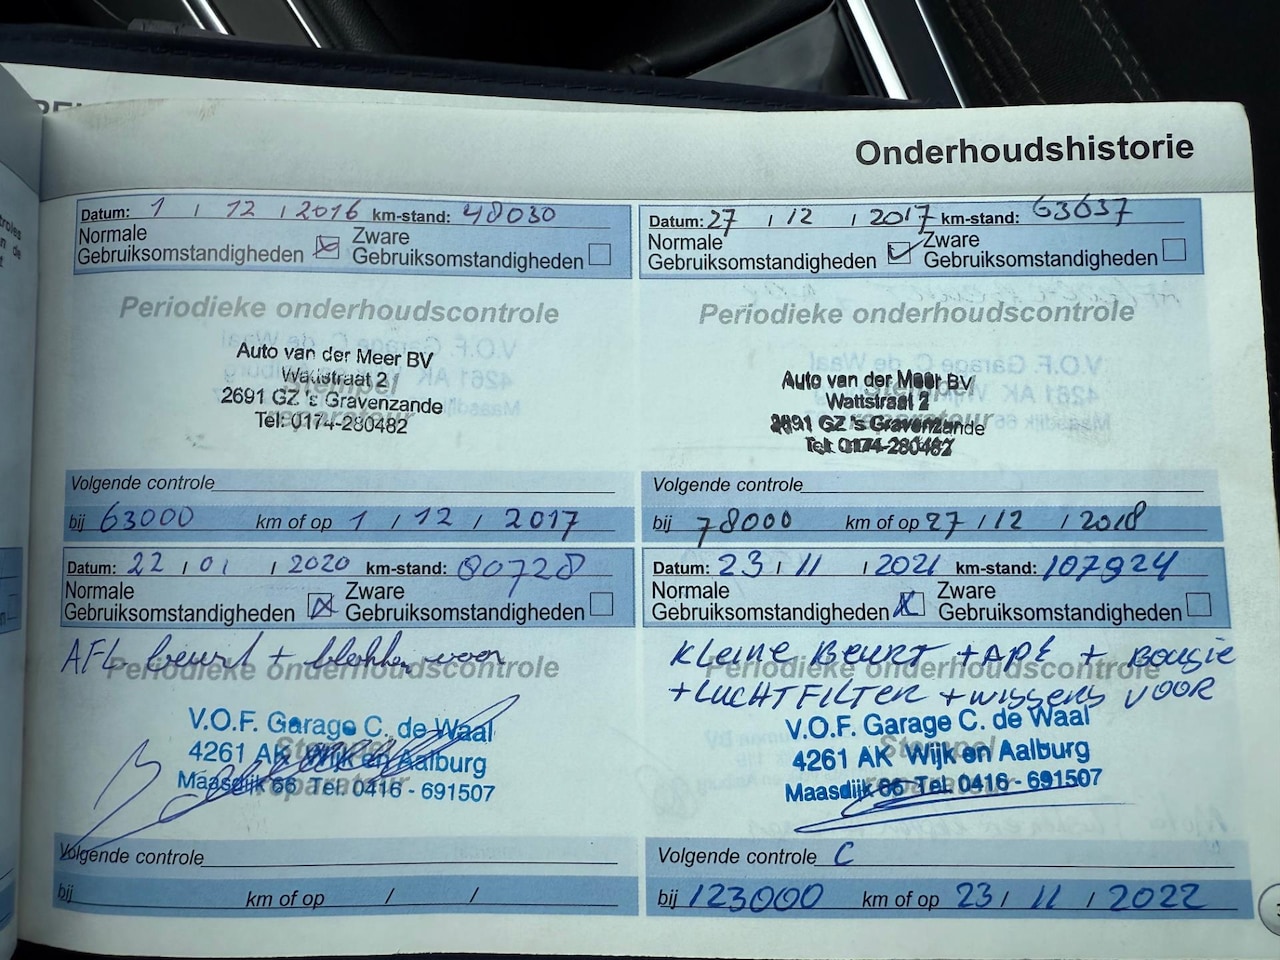 Onderhoudshistorie
Datum: 1 / 12 / 2016 km-stand: 48030
Normale
Gebruiksomstandigheden
Zware
Gebruiksomstandigheden
Periodieke onderhoudscontrole
Auto van der Meer BV
Wattstraat 2
2691 GZ 's Gravenzande
Tel: 0174-280482
Stempel
reparateur
Volgende controle
bij 63000 km of op 1 / 12 / 2017
Datum: 27 / 12 / 2017 km-stand: 63637
Normale
Gebruiksomstandigheden
Zware
Gebruiksomstandigheden
Periodieke onderhoudscontrole
Auto van der Meer BV
Wattstraat 2
2691 GZ 's Gravenzande
Tel: 0174-280482
Stempel
reparateur
Volgende controle
bij 78000 km of op 27 / 12 / 2018
Datum: 22 / 01 / 2020 km-stand: 80728
Normale
Gebruiksomstandigheden
Zware
Gebruiksomstandigheden
AFL beurt + blokken voor
Periodieke onderhoudscontrole
V.O.F. Garage C. de Waal
4261 AK Wijk en Aalburg
Maasdijk 66 Tel. 0416 - 691507
Stempel
reparateur
Volgende controle
bij km of op / /
Datum: 23 / 11 / 2021 km-stand: 107924
Normale
Gebruiksomstandigheden
Zware
Gebruiksomstandigheden
Kleine Beurt + APK + Bougie
+ LUCHTFILTER + wissers VOOR
Periodieke onderhoudscontrole
V.O.F. Garage C. de Waal
4261 AK Wijk en Aalburg
Maasdijk 66 Tel. 0416 - 691507
Stempel
reparateur
Volgende controle C
bij 123000 km of op 23 / 11 / 2022